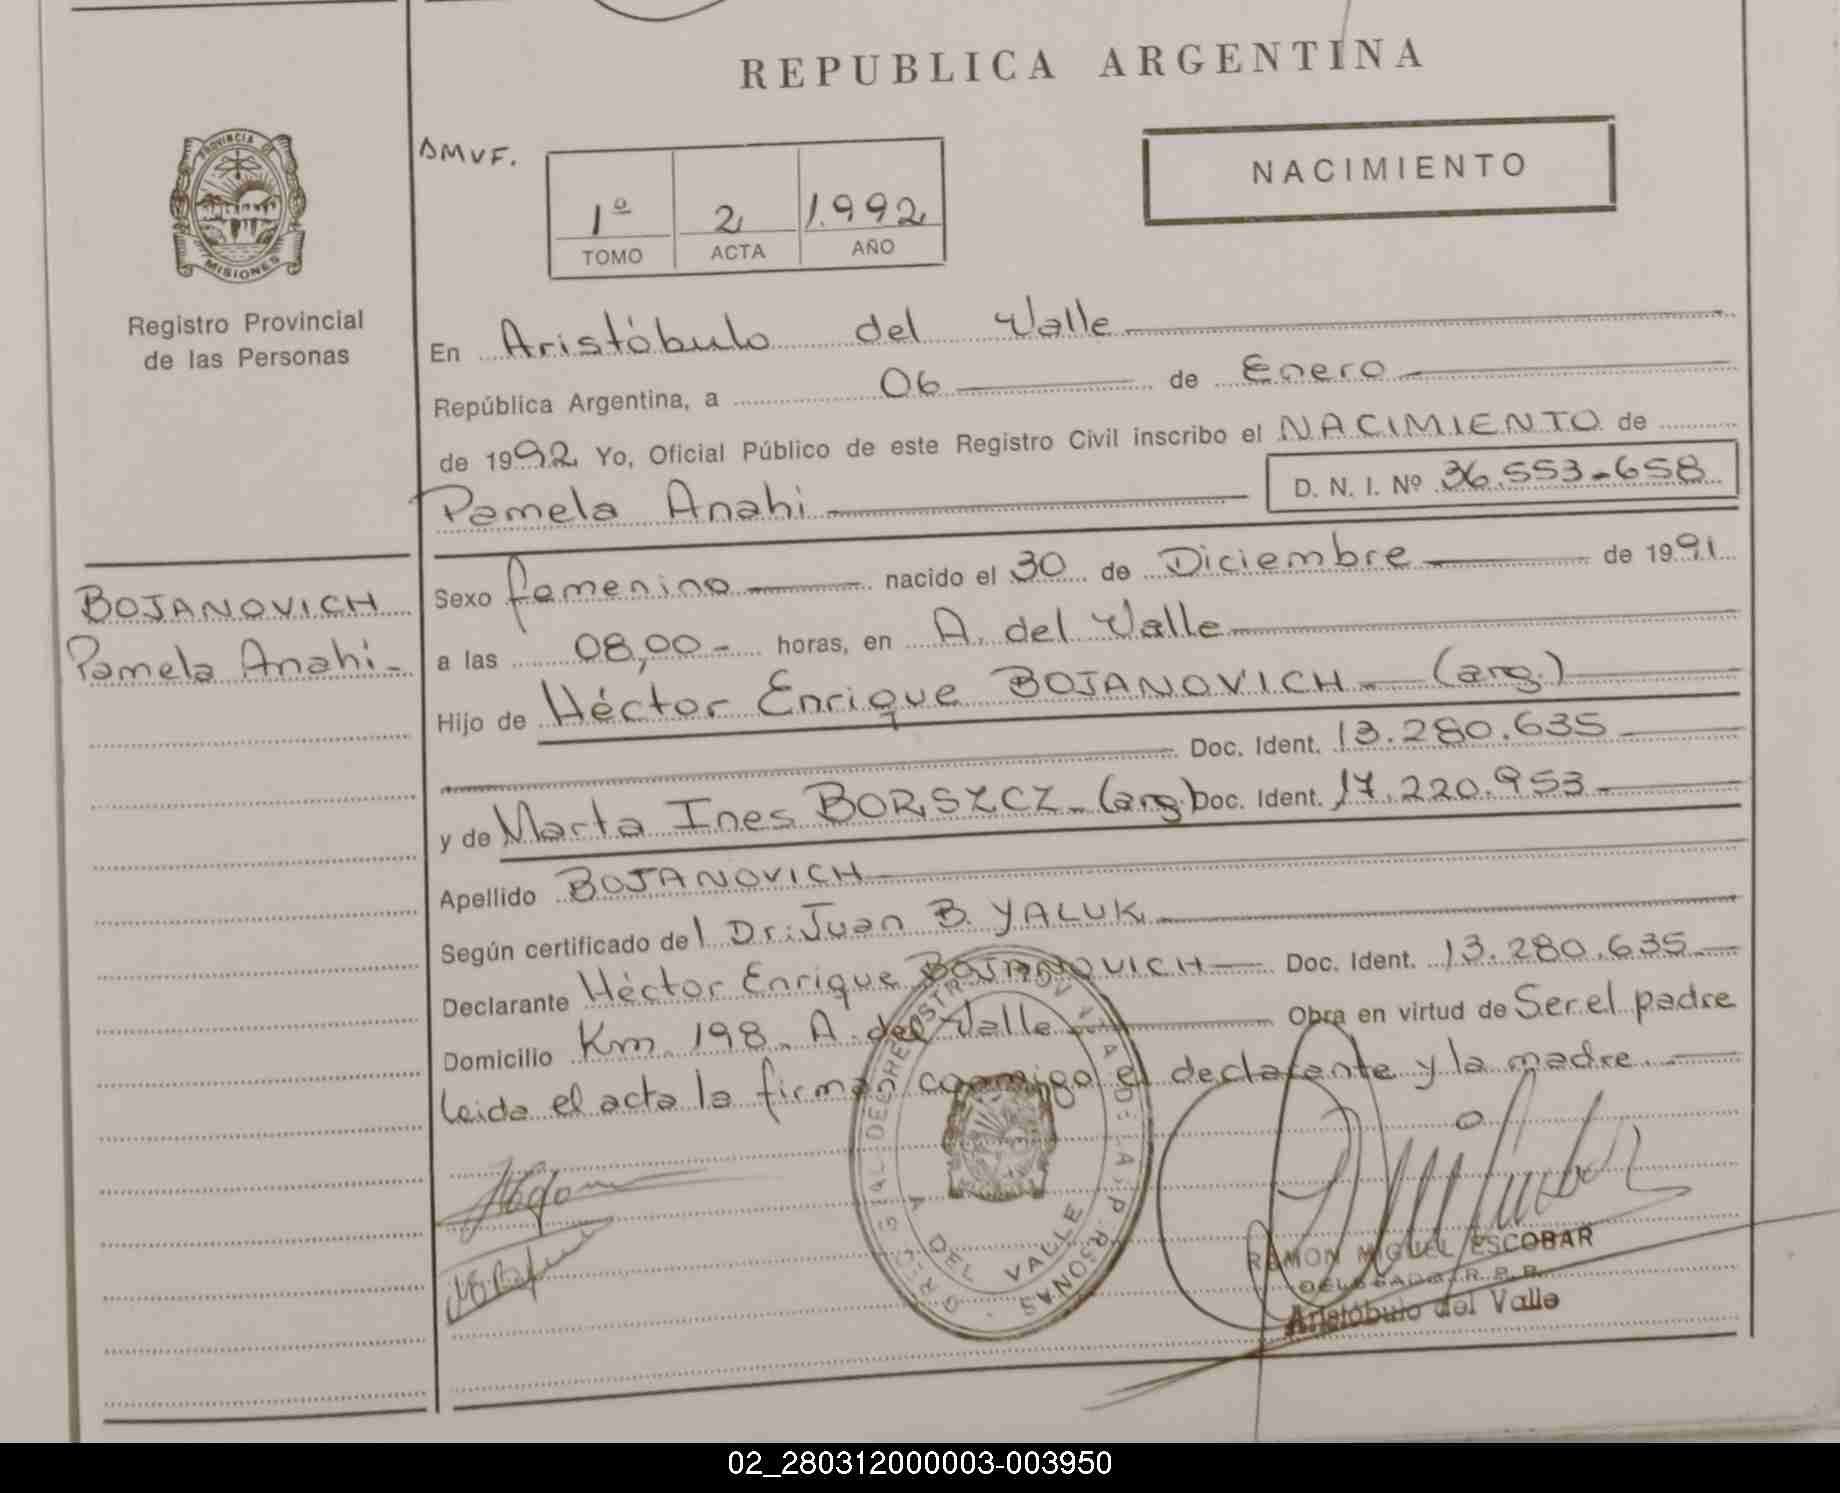 REPUBLICA ARGENTINA
PROVINCIA DE
MISIONES
Registro Provincial
de las Personas
DMVF.
1º 2 1.992
TOMO ACTA AÑO
NACIMIENTO
En Aristóbulo del Valle
República Argentina, a 06 de Enero
de 1992 Yo, Oficial Público de este Registro Civil inscribo el NACIMIENTO de
Pamela Anahi D. N. I. Nº 36.553-658
BOJANOVICH
Pamela Anahi-
Sexo femenino nacido el 30 de Diciembre de 1991
a las 08,00- horas, en A. del Valle
Hijo de Héctor Enrique BOJANOVICH (arg.)
Doc. Ident. 13.280.635
y de Marta Ines BORSZCZ (arg.) Doc. Ident. 17.220.953
Apellido BOJANOVICH
Según certificado del Dr: Juan B. YALUK
Declarante Héctor Enrique BOJANOVICH Doc. Ident. 13.280.635
Domicilio Km. 198. A. del Valle Obra en virtud de Ser el padre
Leida el acta la firman conmigo el declarante y la madre.
A DEL VALLE
RAMON MIGUEL ESCOBAR
DELEGADO R. P. P.
Aristóbulo del Valle
02_280312000003-003950